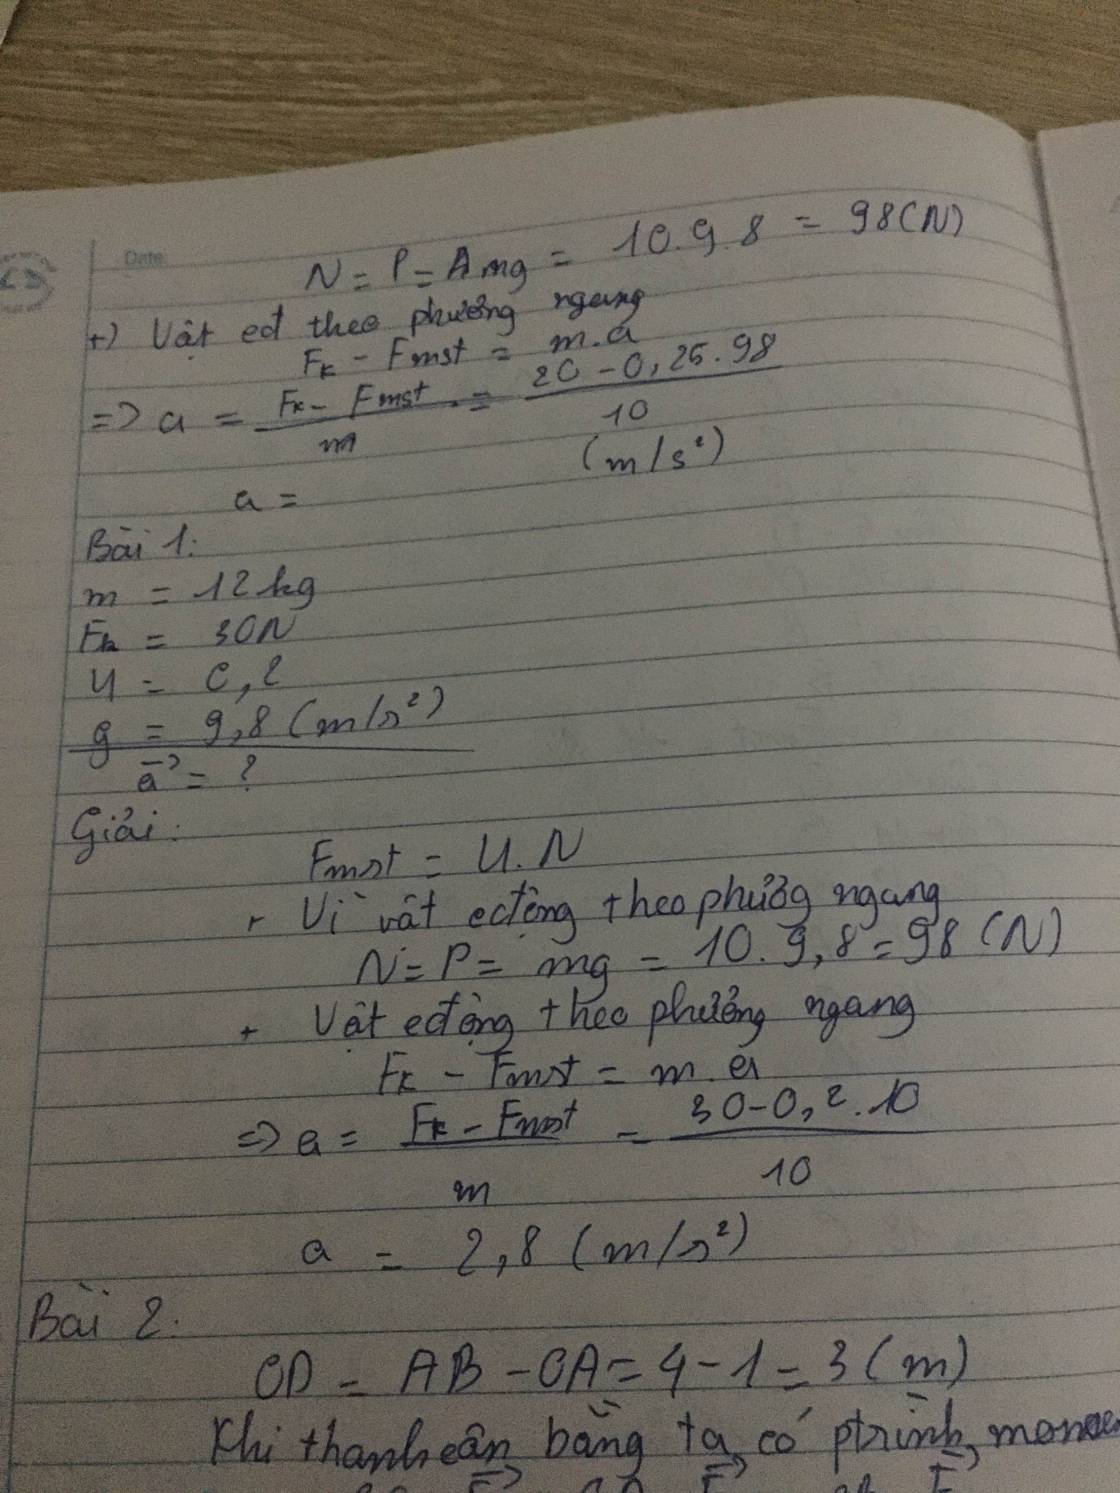 Date
N = P = A mg = 10.9.8 = 98(N)
+) Vật cđ theo phương ngang
Fk - Fmst = m.a
=> a = Fk - Fmst / m = 20 - 0,25.98 / 10
a = (m/s²)
Bài 1:
m = 12kg
Fk = 30N
μ = 0,2
g = 9,8 (m/s²)
a⃗ = ?
Giải:
Fmst = μ.N
+ Vì vật cđộng theo phương ngang
N = P = mg = 10.9,8 = 98 (N)
+ Vật cđộng theo phương ngang
Fk - Fmst = m.a
=> a = Fk - Fmst / m = 30-0,2.10 / 10
a = 2,8 (m/s²)
Bài 2:
OD = AB - OA = 4 - 1 = 3 (m)
Khi thanh cân bằng ta có ptrình